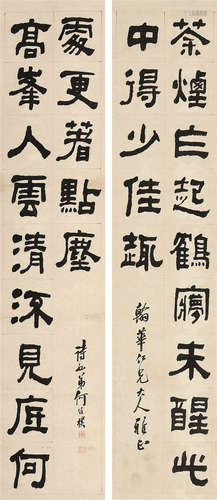 茶煙已起鶴夢未醒此
中得少佳趣
翰華仁兄大人雅正
高峯入雲清流見底何
處更著點塵
詩孫弟何維樸